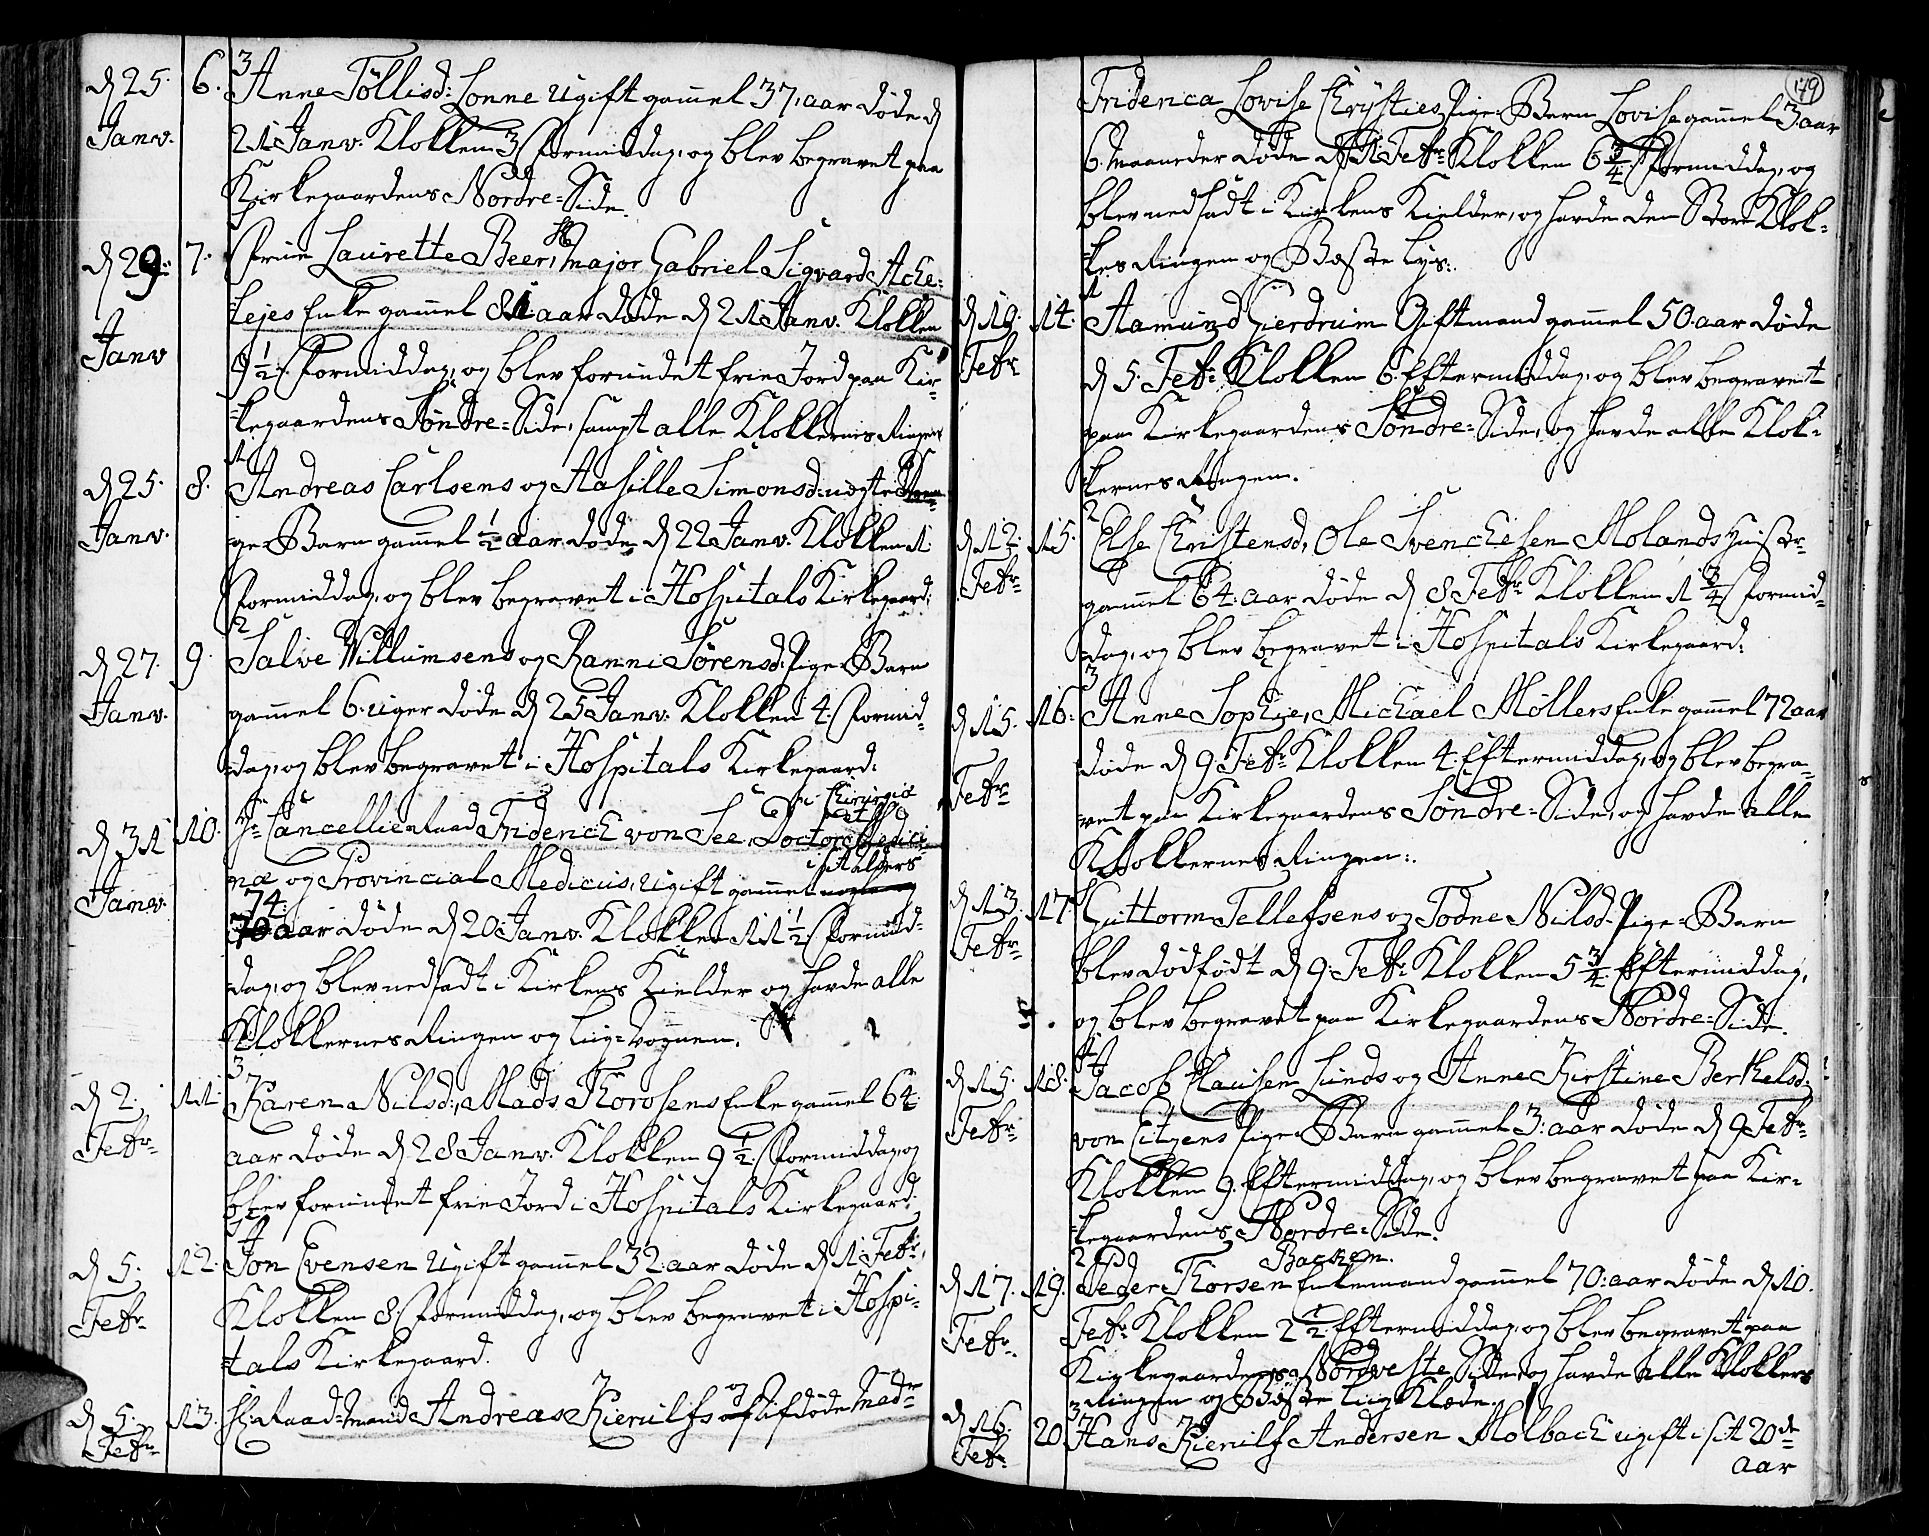 d 25. 6. 3 Anne Tøllisd: Lonne ugift gaml 37. aar døde d
Janv. 21 Janv. Klokken 3 formiddag, og blev begravet paa
Kirkegaardens Nordre=Side.
d 29. 7. Frue Laurette Beer, Major Gabriel Sigvard Ache=
Janv =lejes Enke gaml 81 aar døde d 21 Janv. Klokken
9 1/2. formiddag, og blev forundet frie Jord paa Kir
=kegaardens Søndre=Side, sampt alle Klokkernis Ringen
d 25. 8. 1 Andreas Carlsens og Aasille Simonsd: uægte
Janv. ge=Barn gaml 1/2 aar døde d 22 Janv. Klokken 1.
formiddag, og blev begravet i Hospitals Kirkegaard.
d 27. 9. 2 Salve Willumsens og Ranni Sørensd: Pige=Barn
Janv. gaml 6. uger døde d 25 Janv. Klokken 4. formid=
=dag, og blev begravet i Hospitals Kirkegaard.
Chirurgiæ
d 31 10. Hr Cancellie Raad Friderich von See, Doctor Medici=
Janv. næ og Provincial Medicus, ugift gaml i sit Alders
74.
70 aar døde d 20 Janv. Klokken 11 1/2 formid=
=dag, og blev nedsadt i Kirkens Kielder og havde alle
Klokkernes Ringen og Liig=Vognen.
d 2. 11. 3 Karen Nilsd:, Mads Thorosens Enke gaml 64.
Febr. aar døde d 28 Janv. Klokken 9 1/2. formiddag, og
blev forundet frie Jord i Hospitals Kirkegaard.
d 5. 12. 4 Jon Evensen ugift gaml 32 aar døde d 1 Febr.
Febr. Klokken 8. formiddag, og blev begravet i Hospi=
=tals Kirkegaard.
d 5. 13. Sr. Raad=mand Andreas Kierulfs og afdøde Madr
Febr.
179
Friderica Lovise Chrysties Pige=Barn Lovise gaml 3 aar
6. Maaneder døde d 1 Febr. Klokken 6 3/4 formiddag, og
blev nedsadt i Kirkens Kielder, og havde den Store Klok=
=kes Ringen og Beste Lys.
d 10. 14. 1 Aamund Gierdrum Giftmand gaml 50. aar døde
Febr. d 5. Febr. Klokken 6. Eftermiddag, og blev begravet
paa Kirkegaardens Søndre=Side, og havde alle Klok=
kernes Ringen.
d 12. 15. 2 Else Christensd, Ole Svenchesen Molands Hustr=
Febr. gaml 64. aar døde d 8 Febr. Klokken 1 3/4 formid=
=dag, og blev begravet i Hospitals Kirkegaard.
d 15. 16. 3 Anne Sophie, Michael Møllers Enke gaml 72 aar
Febr. døde d 9 Febr. Klokken 4. Eftermiddag, og blev begra=
=vet paa Kirkegaardens Søndre=Side, og havde alle
Klokkernes Ringen.
d 13. 17. Guttorm Tellefsens og Todne Nilsd. Pige=Barn
Febr. blev dødfødt d 9. Febr. Klokken 5 3/4 Eftermiddag,
og blev begravet paa Kirkegaardens Nordre=Side.
d 15. 18. Jacob Clausen Lunds og Anne Kirstine Berthelsd.
Febr. von Eitzens Pige=Barn gaml 3. aar døde d 9 Febr.
Klokken 9. Eftermiddag, og blev begravet paa Kir=
=kegaardens Nordre=Side.
Backen.
d 17. 19. 2 Peder Thorsen Enkemand gaml 70. aar døde d 10.
Febr. Febr. Klokken 2 1/2 Eftermiddag, og blev begravet paa
Kirkegaardens Nordveste Side, og havde alle Klokkers
Ringen og Beste Liig=Klæde.
d 16. 20. 3 Hans Kierulf Andersen Molbach ugift i sit 20de
Febr. aar